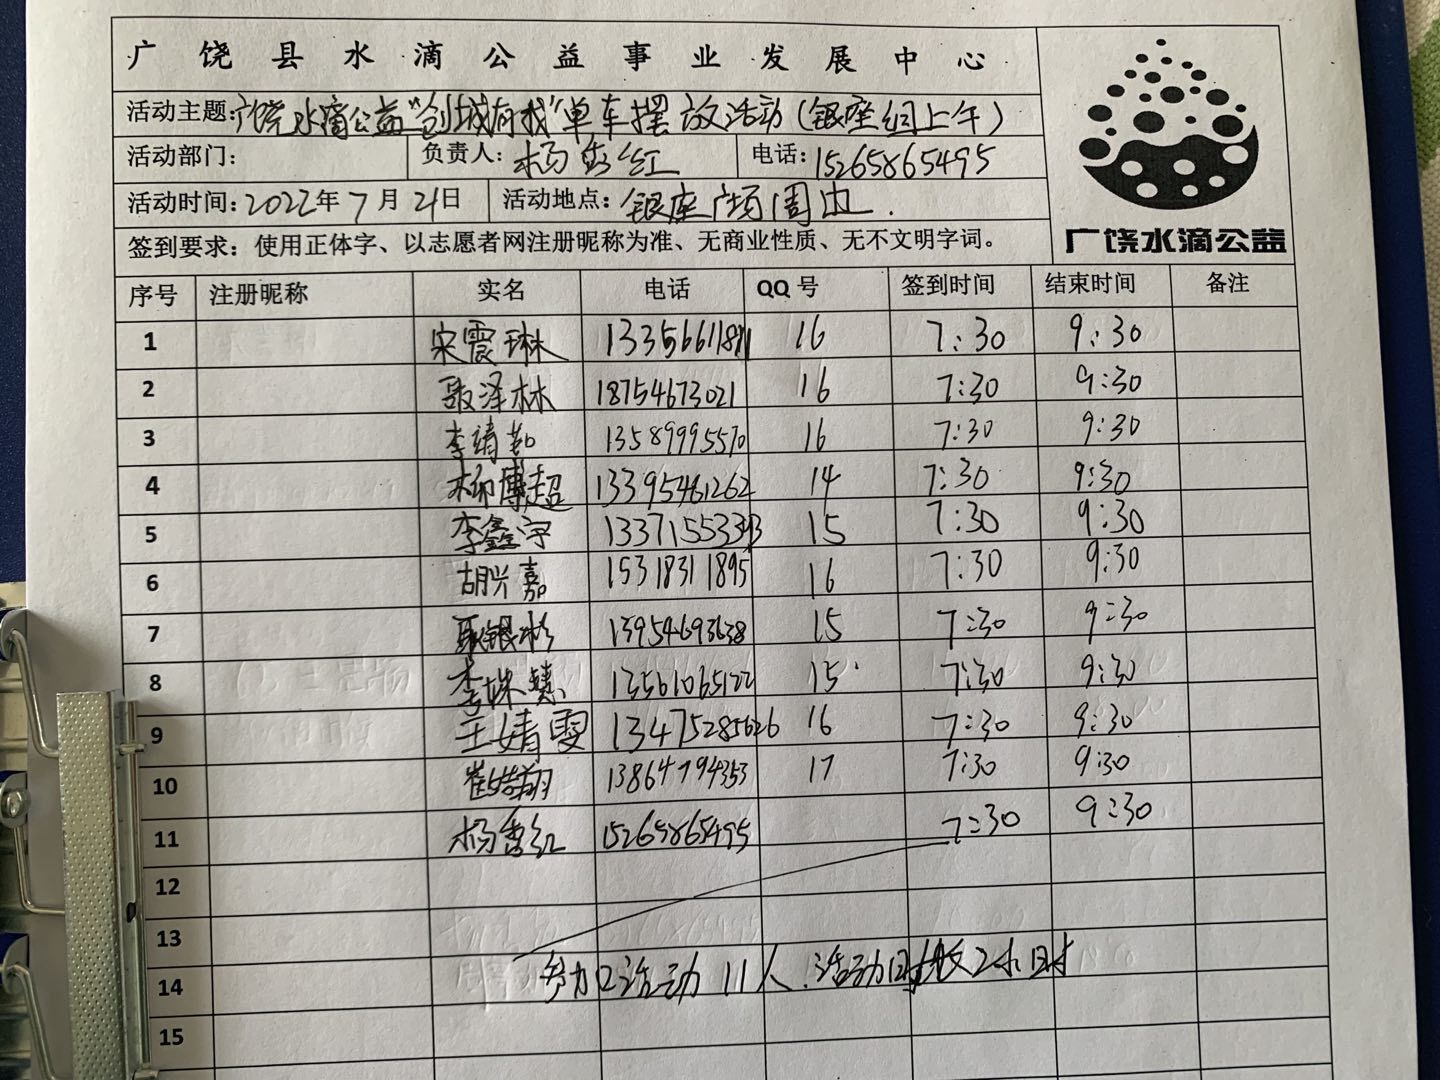 广饶县水滴公益事业发展中心
活动主题:广饶水滴公益"创城有我"单车摆放活动(银座组上午)
活动部门: 负责人:杨秀红 电话:15265865495
活动时间:2022年7月21日 活动地点:银座广场周边.
签到要求:使用正体字、以志愿者网注册昵称为准、无商业性质、无不文明字词。
广饶水滴公益
序号 注册昵称 实名 电话 QQ号 签到时间 结束时间 备注
1 宋震琳 16 7:30 9:30
2 聂泽林 18754673021 16 7:30 9:30
3 李靖茹 13589995570 16 7:30 9:30
4 杨博超 13395461262 14 7:30 9:30
5 李鑫宇 15 7:30 9:30
6 胡兴嘉 15318311895 16 7:30 9:30
7 13954693638 15 7:30 9:30
8 李姝臻 13561065122 15 7:30 9:30
9 王婧雯 13475285626 16 7:30 9:30
10 13864794353 17 7:30 9:30
11 杨秀红 15265865495 7:30 9:30
12
13
14 参加活动11人.活动时长2小时
15